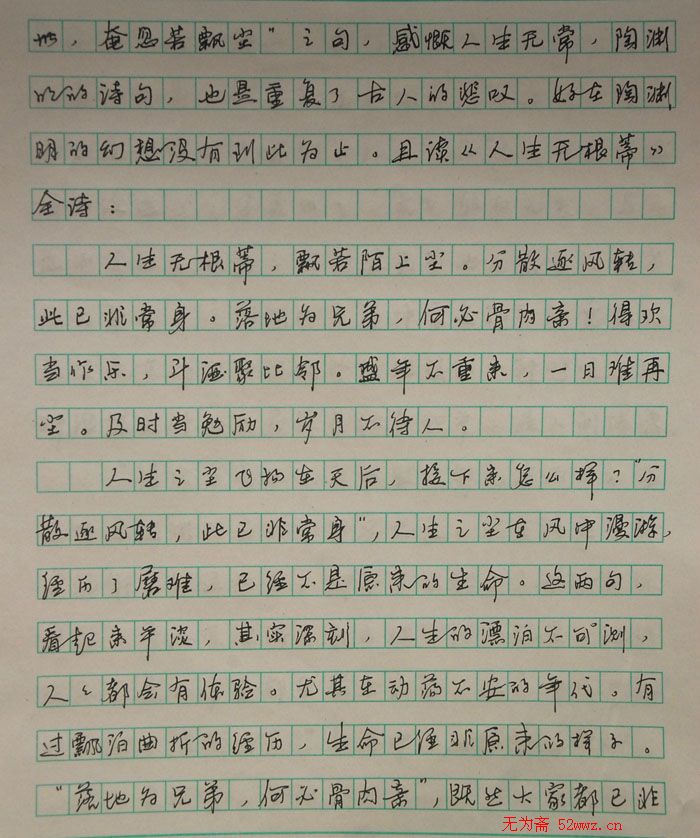 世，奄忽若飘尘”之句，感慨人生无常，陶渊
明的诗句，也是重复了古人的悲叹。好在陶渊
明的幻想没有到此为止。且读《人生无根蒂》
全诗：
人生无根蒂，飘若陌上尘。分散逐风转，
此已非常身。落地为兄弟，何必骨肉亲！得欢
当作乐，斗酒聚比邻。盛年不重来，一日难再
尘。及时当勉励，岁月不待人。
人生之尘飞扬在天后，接下来怎么样？“分
散逐风转，此已非常身”，人生之尘在风中漫游，
经历了磨难，已经不是原来的生命。这两句，
看起来平淡，其实深刻，人生的漂泊不可测，
人人都会有体验。尤其在动荡不安的年代。有
过飘泊曲折的经历，生命已经非原来的样子。
“落地为兄弟，何必骨肉亲”，既然大家都已非
无为斋 52wwz.cn